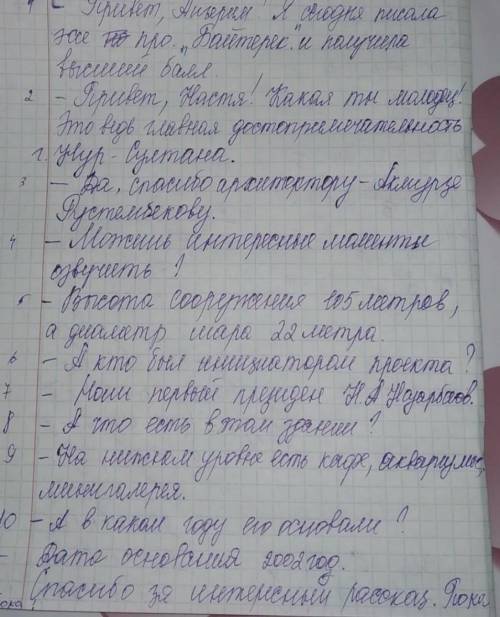 1 - Привет, Айгерим! Я сегодня писала
эссе про "Байтерек" и получила
высший балл.
2 - Привет, Настя! Какая ты молодец!
Это ведь главная достопремечательность
г. Нур-Султана.
3 - Да, спасибо архитектору - Акмурзе
Рустембекову.
4 - Можешь интересные моменты
озвучить?
5 - Высота сооружения 105 метров,
а диаметр шара 22 метра.
6 - А кто был инициатором проекта?
7 - Наш первый президен Н.А Назарбаев.
8 - А что есть в этом здании?
9 - На нижнем уровне есть кафе, аквариумы,
минигалерея.
10 - А в каком году его основали?
- Дата основания 2002 год.
Спасибо за интересный рассказ. Пока
Пока!